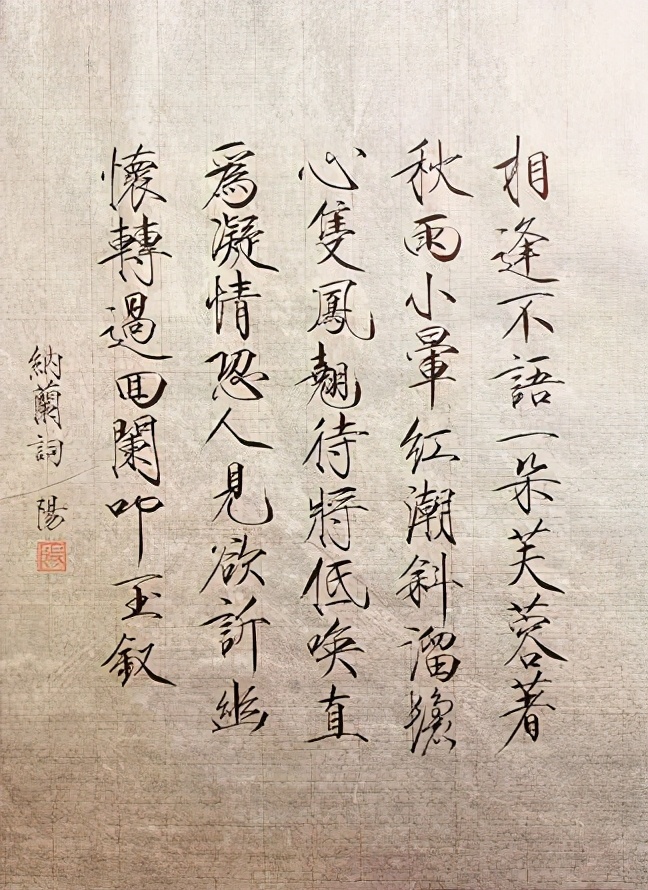 相逢不語一朵芙蓉著
秋雨小暈紅潮斜溜鬟
心隻鳳翹待將低喚直
爲凝情恐人見欲訴幽
懷轉過回闌叩玉釵
納蘭詞 陽